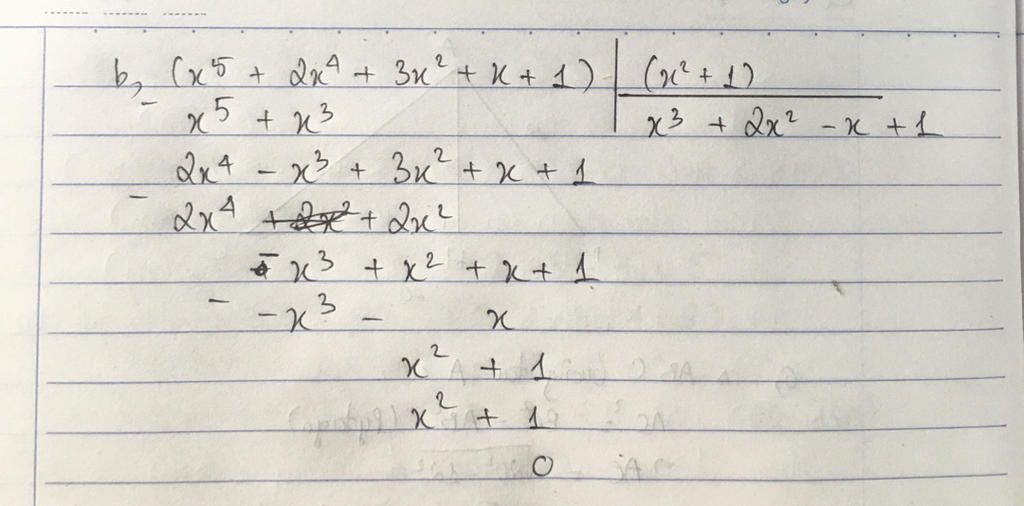 b, (x⁵ + 2x⁴ + 3x² + x + 1) | (x² + 1)
- x⁵ + x³ | x³ + 2x² - x + 1
2x⁴ - x³ + 3x² + x + 1
- 2x⁴ + 2x²
- x³ + x² + x + 1
- -x³ - x
x² + 1
x² + 1
0